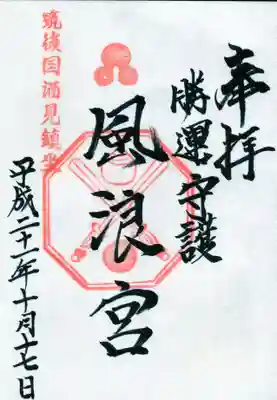 奉拝
勝運守護
風浪宮
筑後国酒見鎮座
平成二十一年十月十七日